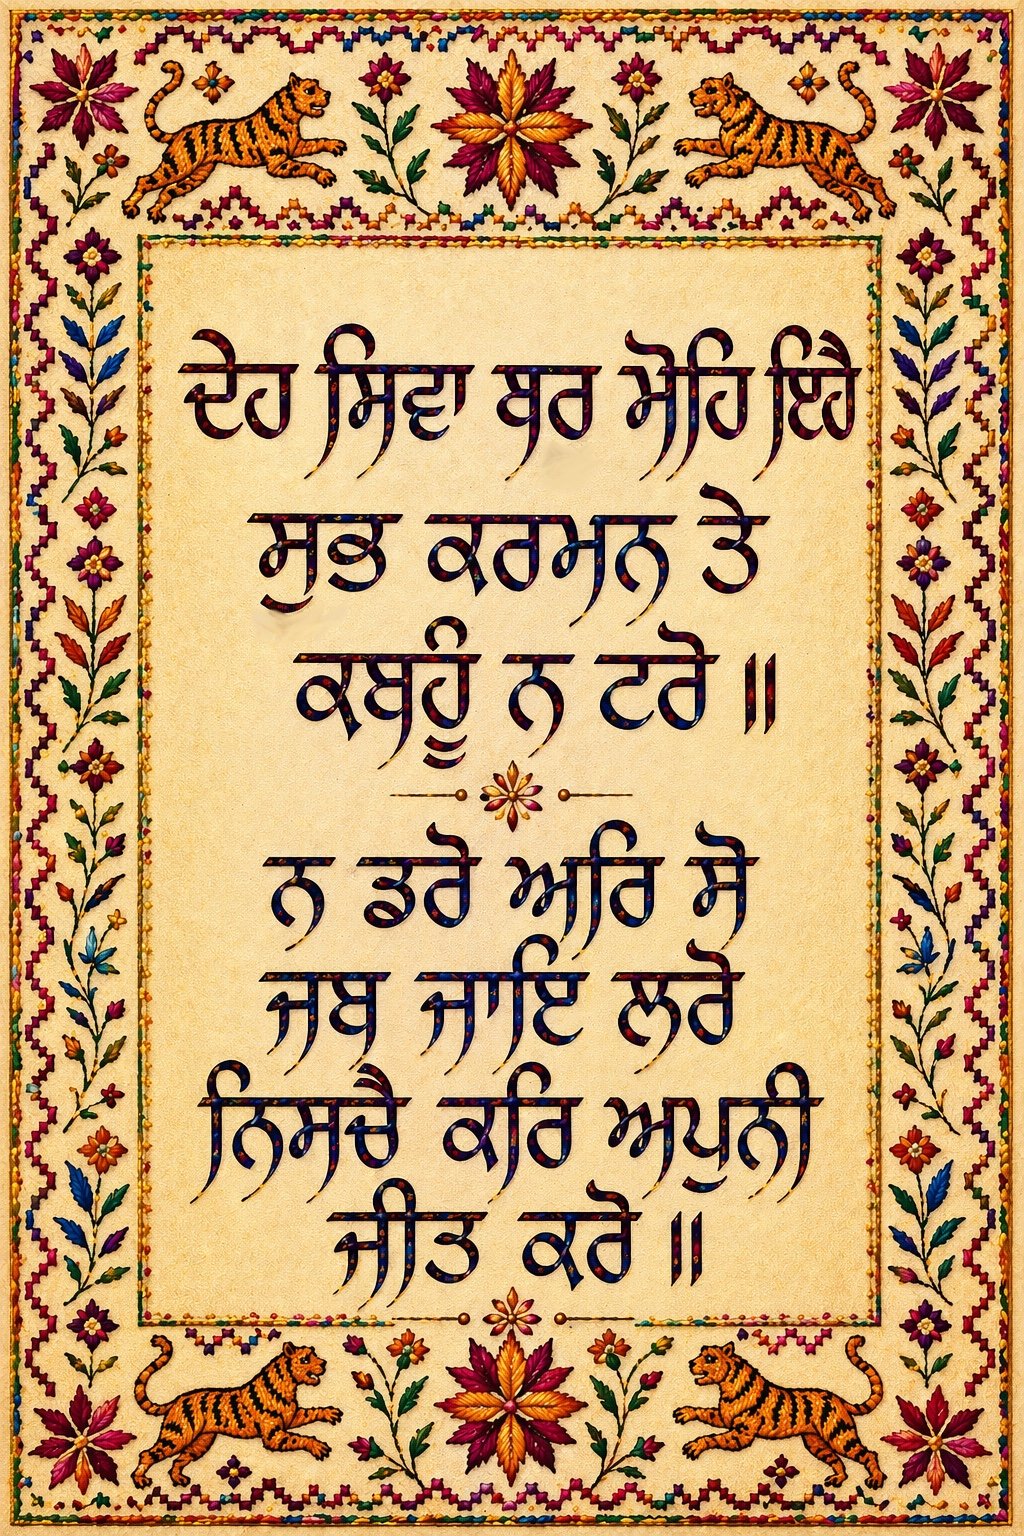 ਦੇਹ ਸਿਵਾ ਬਰ ਮੋਹਿ ਇਹੈ
ਸੁਭ ਕਰਮਨ ਤੇ
ਕਬਹੂੰ ਨ ਟਰੋ ॥
ਨ ਡਰੋ ਅਰਿ ਸੋ
ਜਬ ਜਾਇ ਲਰੋ
ਨਿਸਚੈ ਕਰਿ ਅਪੁਨੀ
ਜੀਤ ਕਰੋ ॥